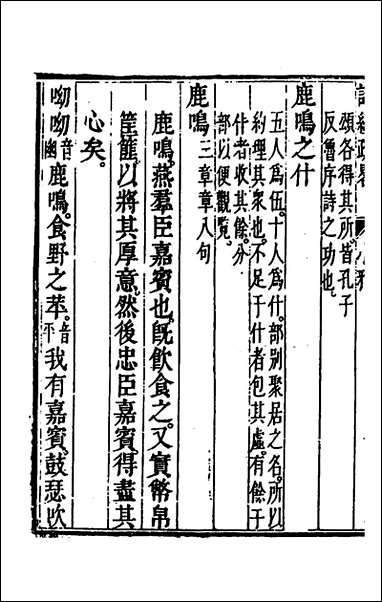 頌各得其所皆孔子
反魯序詩之功也
鹿鳴之什
五人爲伍十人爲什部別聚居之名所以
約理其衆也不足于什者包其虛有餘于
什者收其餘分
部以便觀覧
鹿鳴三章章八句
鹿鳴燕羣臣嘉賓也旣飲食之又實幣帛
筐篚以將其厚意然後忠臣嘉賓得盡其
心矣
呦呦音幽鹿鳴食野之苹音平我有嘉賓鼓瑟吹